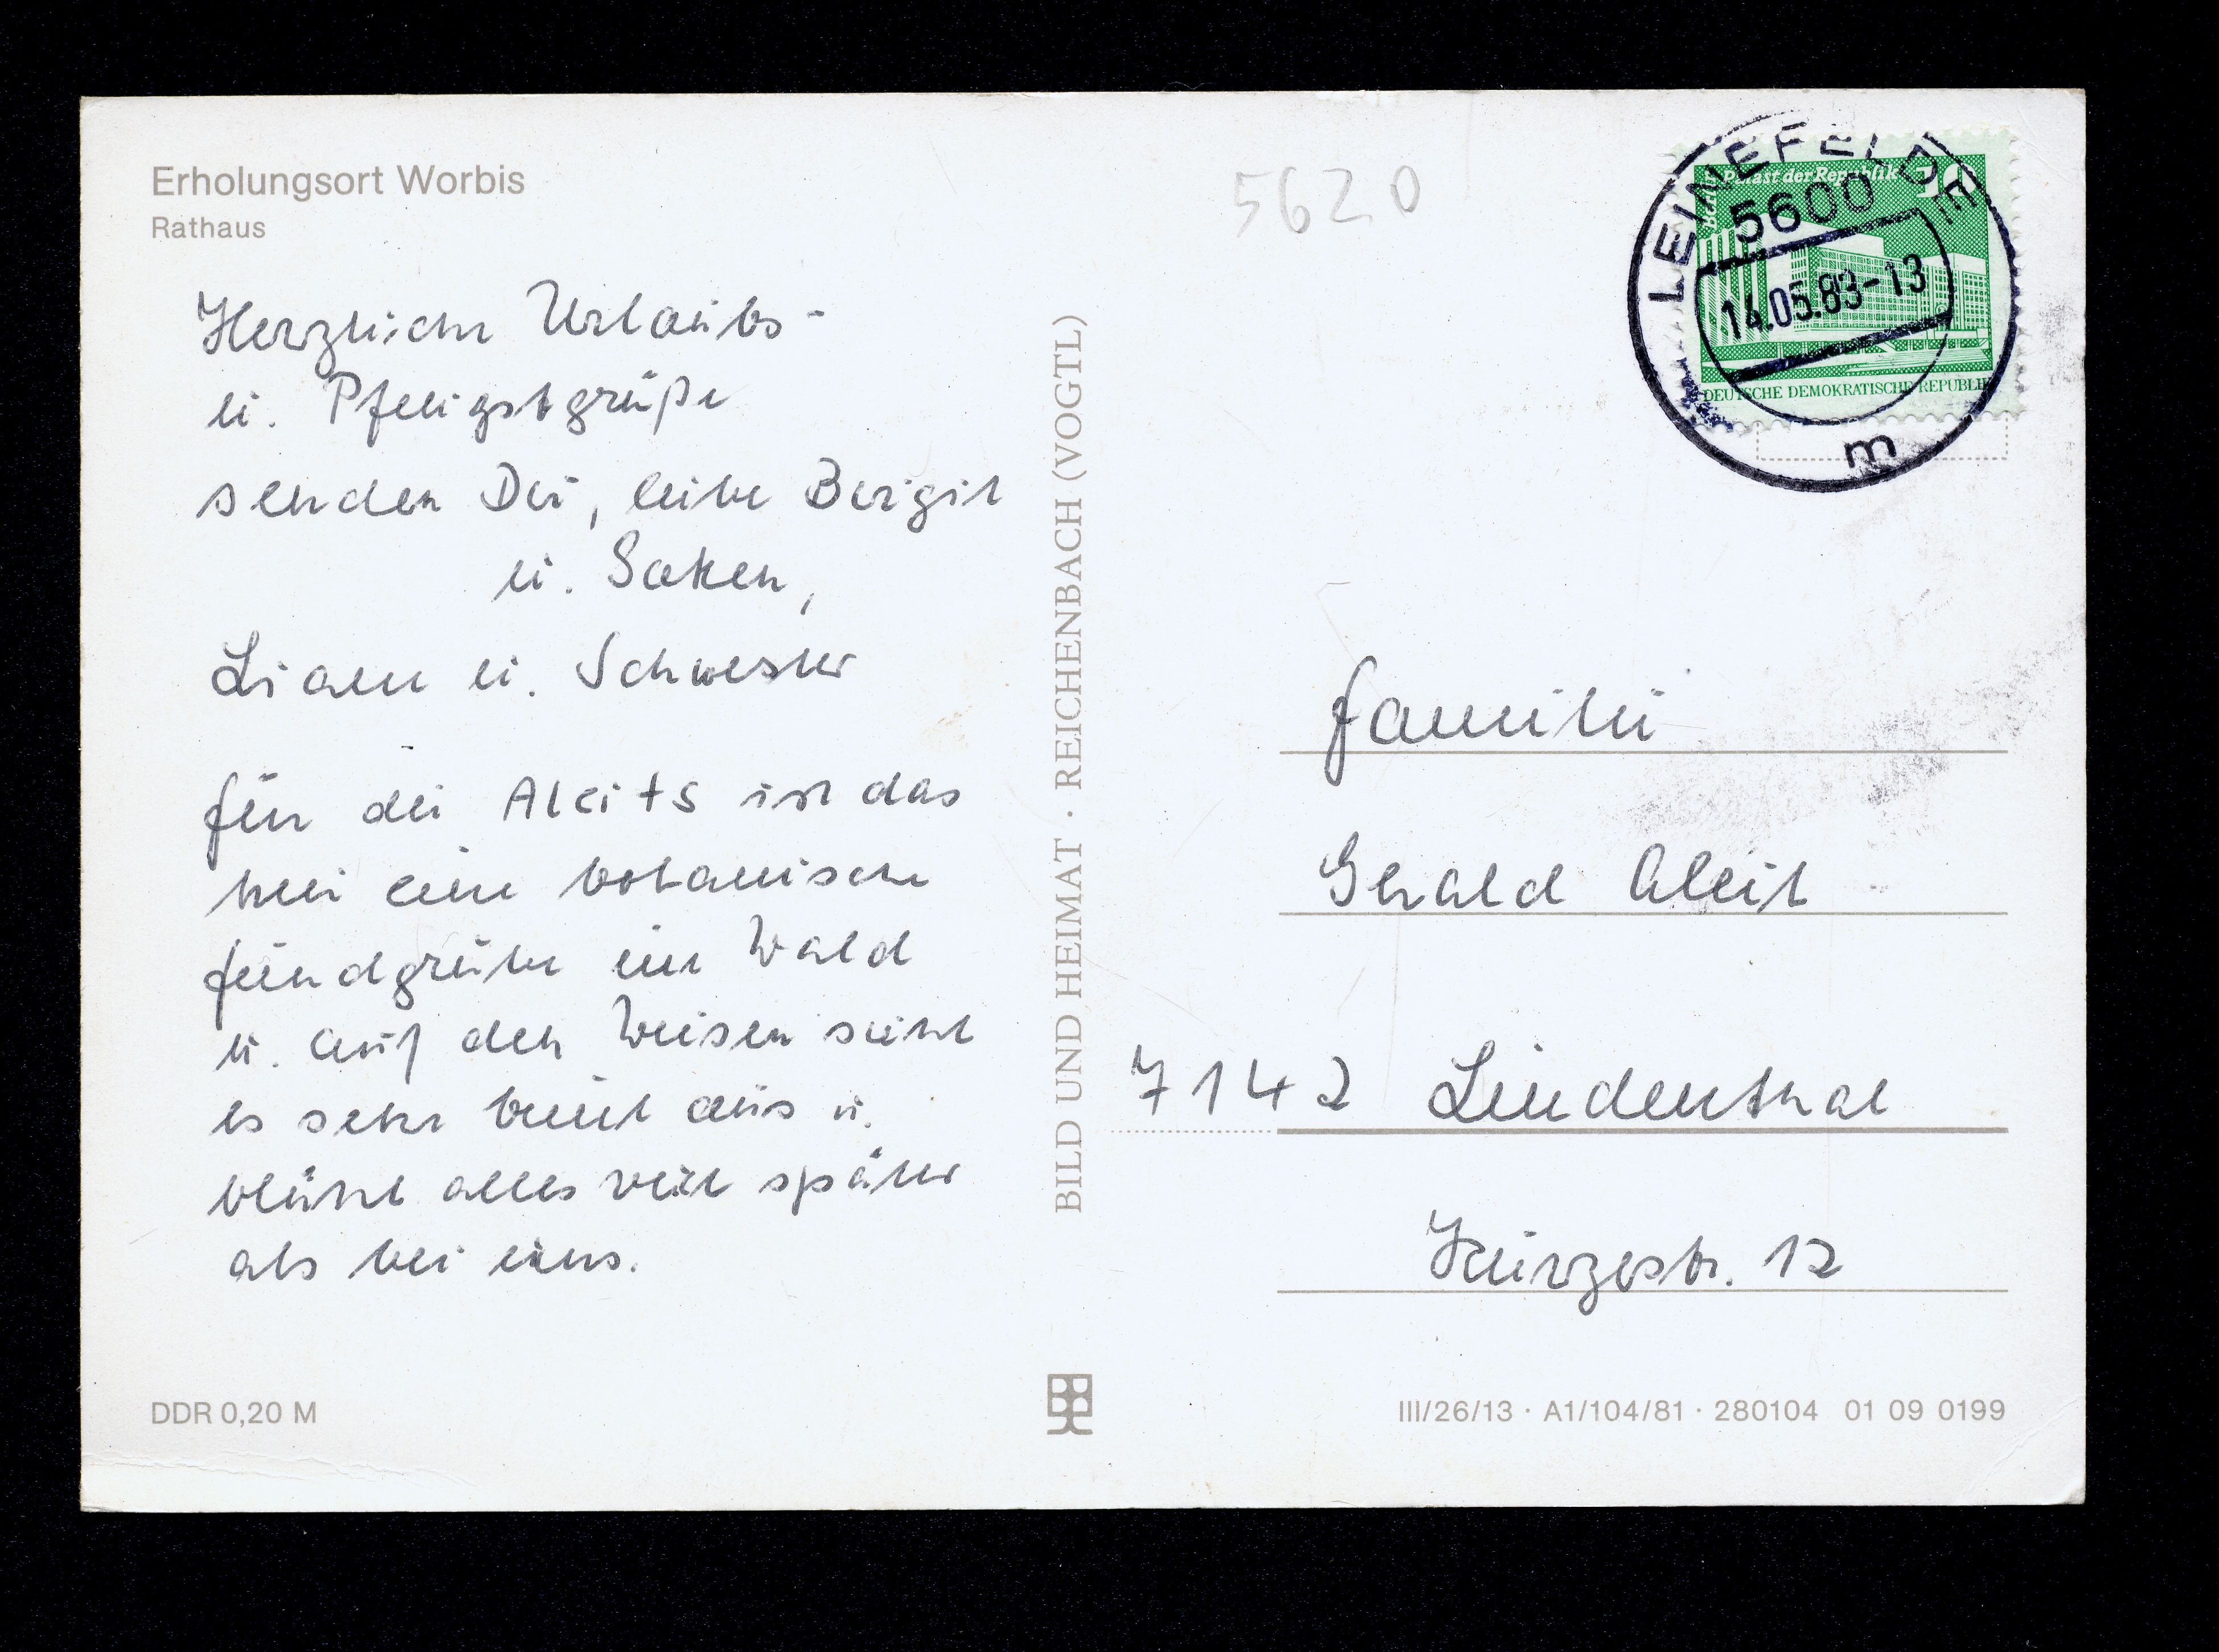 Erholungsort Worbis
Rathaus
Herzliche Urlaubs-
u. Pfingstgrüße
senden Dir, liebe Birgit
u.
u. Schwester
für die Aleits ist das
hier eine botanische
fundgrube im Wald
u. auf den Wiesen sieht
es sehr bunt aus u.
blüht alles viel später
als bei uns.
DDR 0,20 M
BILD UND HEIMAT · REICHENBACH (VOGTL)
5620
LEINEFELDE
5600
14.05.83-13
m
Palast der Republik
DEUTSCHE DEMOKRATISCHE REPUBLIK
familie
Gerald Aleit
7142 Lindenthal
Kürzestr. 12
III/26/13 · A1/104/81 · 280104 01 09 0199